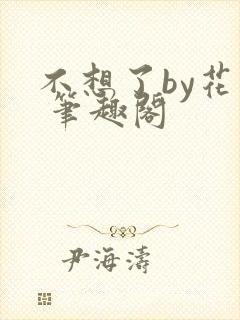 不想了by花
笔趣阁
尹海涛